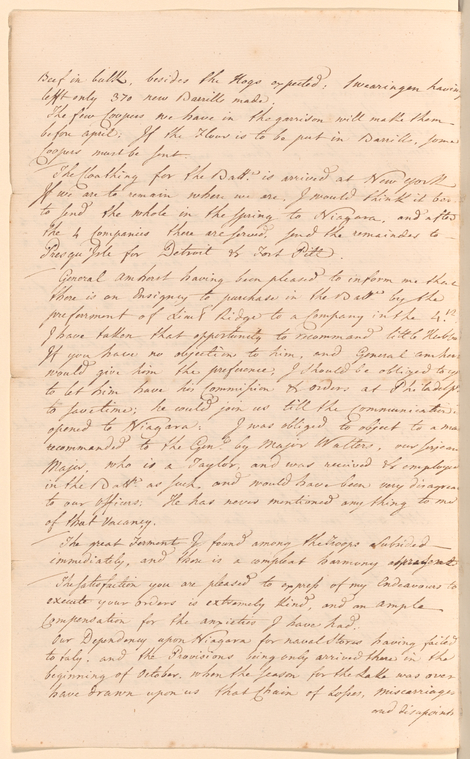 Beef in bulk, besides the Hogs expected; Swearingen having
left only 370 new Barrills made
The few Coopers we have in the garrison will make them
before april: If the Flour is to be put in Barrills, some
Coopers must be sent.
The Cloathing for the Batt.n is arrived at New York
If we are to remain where we are, I would think it
to send the whole in the Spring to Niagara, and after
the 4 Companies there are served, send the remainder to
Presqu'Isle for Detroit & Fort Pitt.
General Amherst having been pleased to inform me that
there is an Ensigncy to purchase in the Batt.n by the
preferment of Lieut Ridge to a Company in the 4.th
I have taken that opportunity to recommand little
If you have no objection to him, and General Amherst
would give him the preference, I should be obliged to
to let him have his Commission & orders at Philadelp
to save time; he could join us till the Communication
opened to Niagara; I was obliged to object to a man
recommanded to the Gen.l by Major Walters, our Serjean
Major, who is a Taylor, and was received & employed
in the Batt.n as such, and would have been very disagree
to our officers: He has never mentioned any thing to me
of that Vacancy.
The great Torment I found among the Troops Subsided
immediately, and there is a compleat harmony at present
The satisfaction you are pleased to express of my Endeavours to
execute your orders is extremely kind, and an ample
Compensation for the anxieties I have had.
Our Dependency upon Niagara for naval Stores having failed
to July, and the Provisions being only arrived there in the
beginning of October, when the season for the Lake was over
have drawn upon us that Chain of Losses, miscarriages
and disapoint